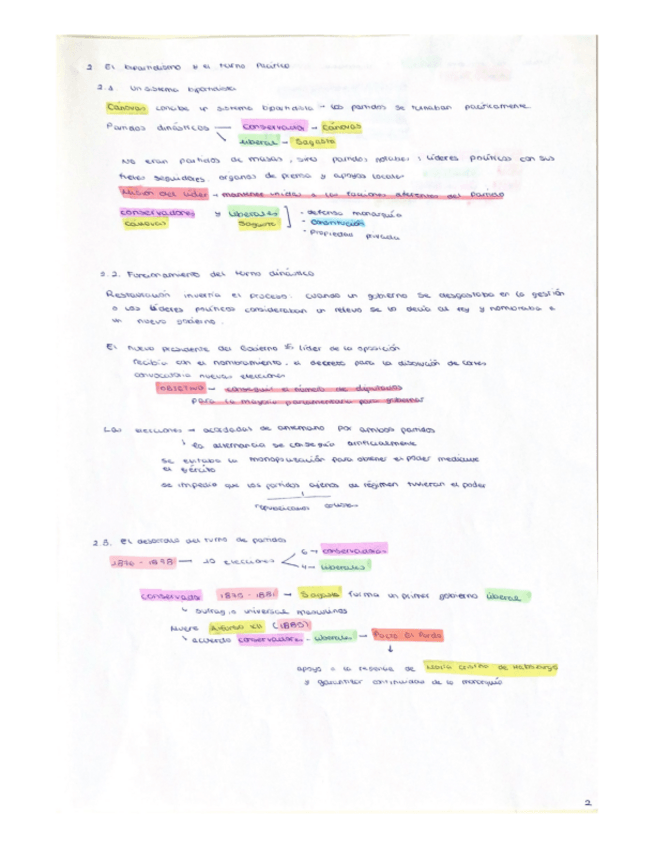 2. El bipartidismo y el turno pacífico
2.1. Un sistema bipartidista
Cánovas concibe un sistema bipartidista → los partidos se turnaban pacíficamente
Partidos dinásticos → conservador → Cánovas
liberal → Sagasta
No eran partidos de masas, sino partidos notables; líderes políticos con sus
fieles seguidores, órganos de prensa y apoyos locales
Misión del líder → mantener unidas a las facciones diferentes del partido
conservadores y liberales
Cánovas Sagasta
- defensa monarquía
- Constitución
- Propiedad privada
2.2. Funcionamiento del turno dinástico
Restauración invertía el proceso: cuando un gobierno se desgastaba en la gestión
o los líderes políticos consideraban un relevo se lo decía al rey y nombraba a
un nuevo gobierno.
El nuevo presidente del Gobierno líder de la oposición
recibía con el nombramiento, el decreto para la disolución de cortes
convocatoria nuevas elecciones
OBJETIVO → conseguir el número de diputados
para la mayoría parlamentaria para gobernar
Las elecciones → acordadas de antemano por ambos partidos
la alternancia se conseguía artificialmente
se evitaba la monopolización para obtener el poder mediante
el ejército
se impedía que los partidos ajenos al régimen tuvieran el poder
republicanos carlistas
2.3. El desarrollo del turno de partidos
1876 - 1898 — 10 elecciones
6 → conservadores
4 → liberales
conservador 1875 - 1881 → Sagasta forma un primer gobierno liberal
sufragio universal masculino
Muere Alfonso XII (1885)
acuerdo conservadores - liberales → Pacto El Pardo
apoyo a la regencia de María Cristina de Habsburgo
y garantizar continuidad de la monarquía
2